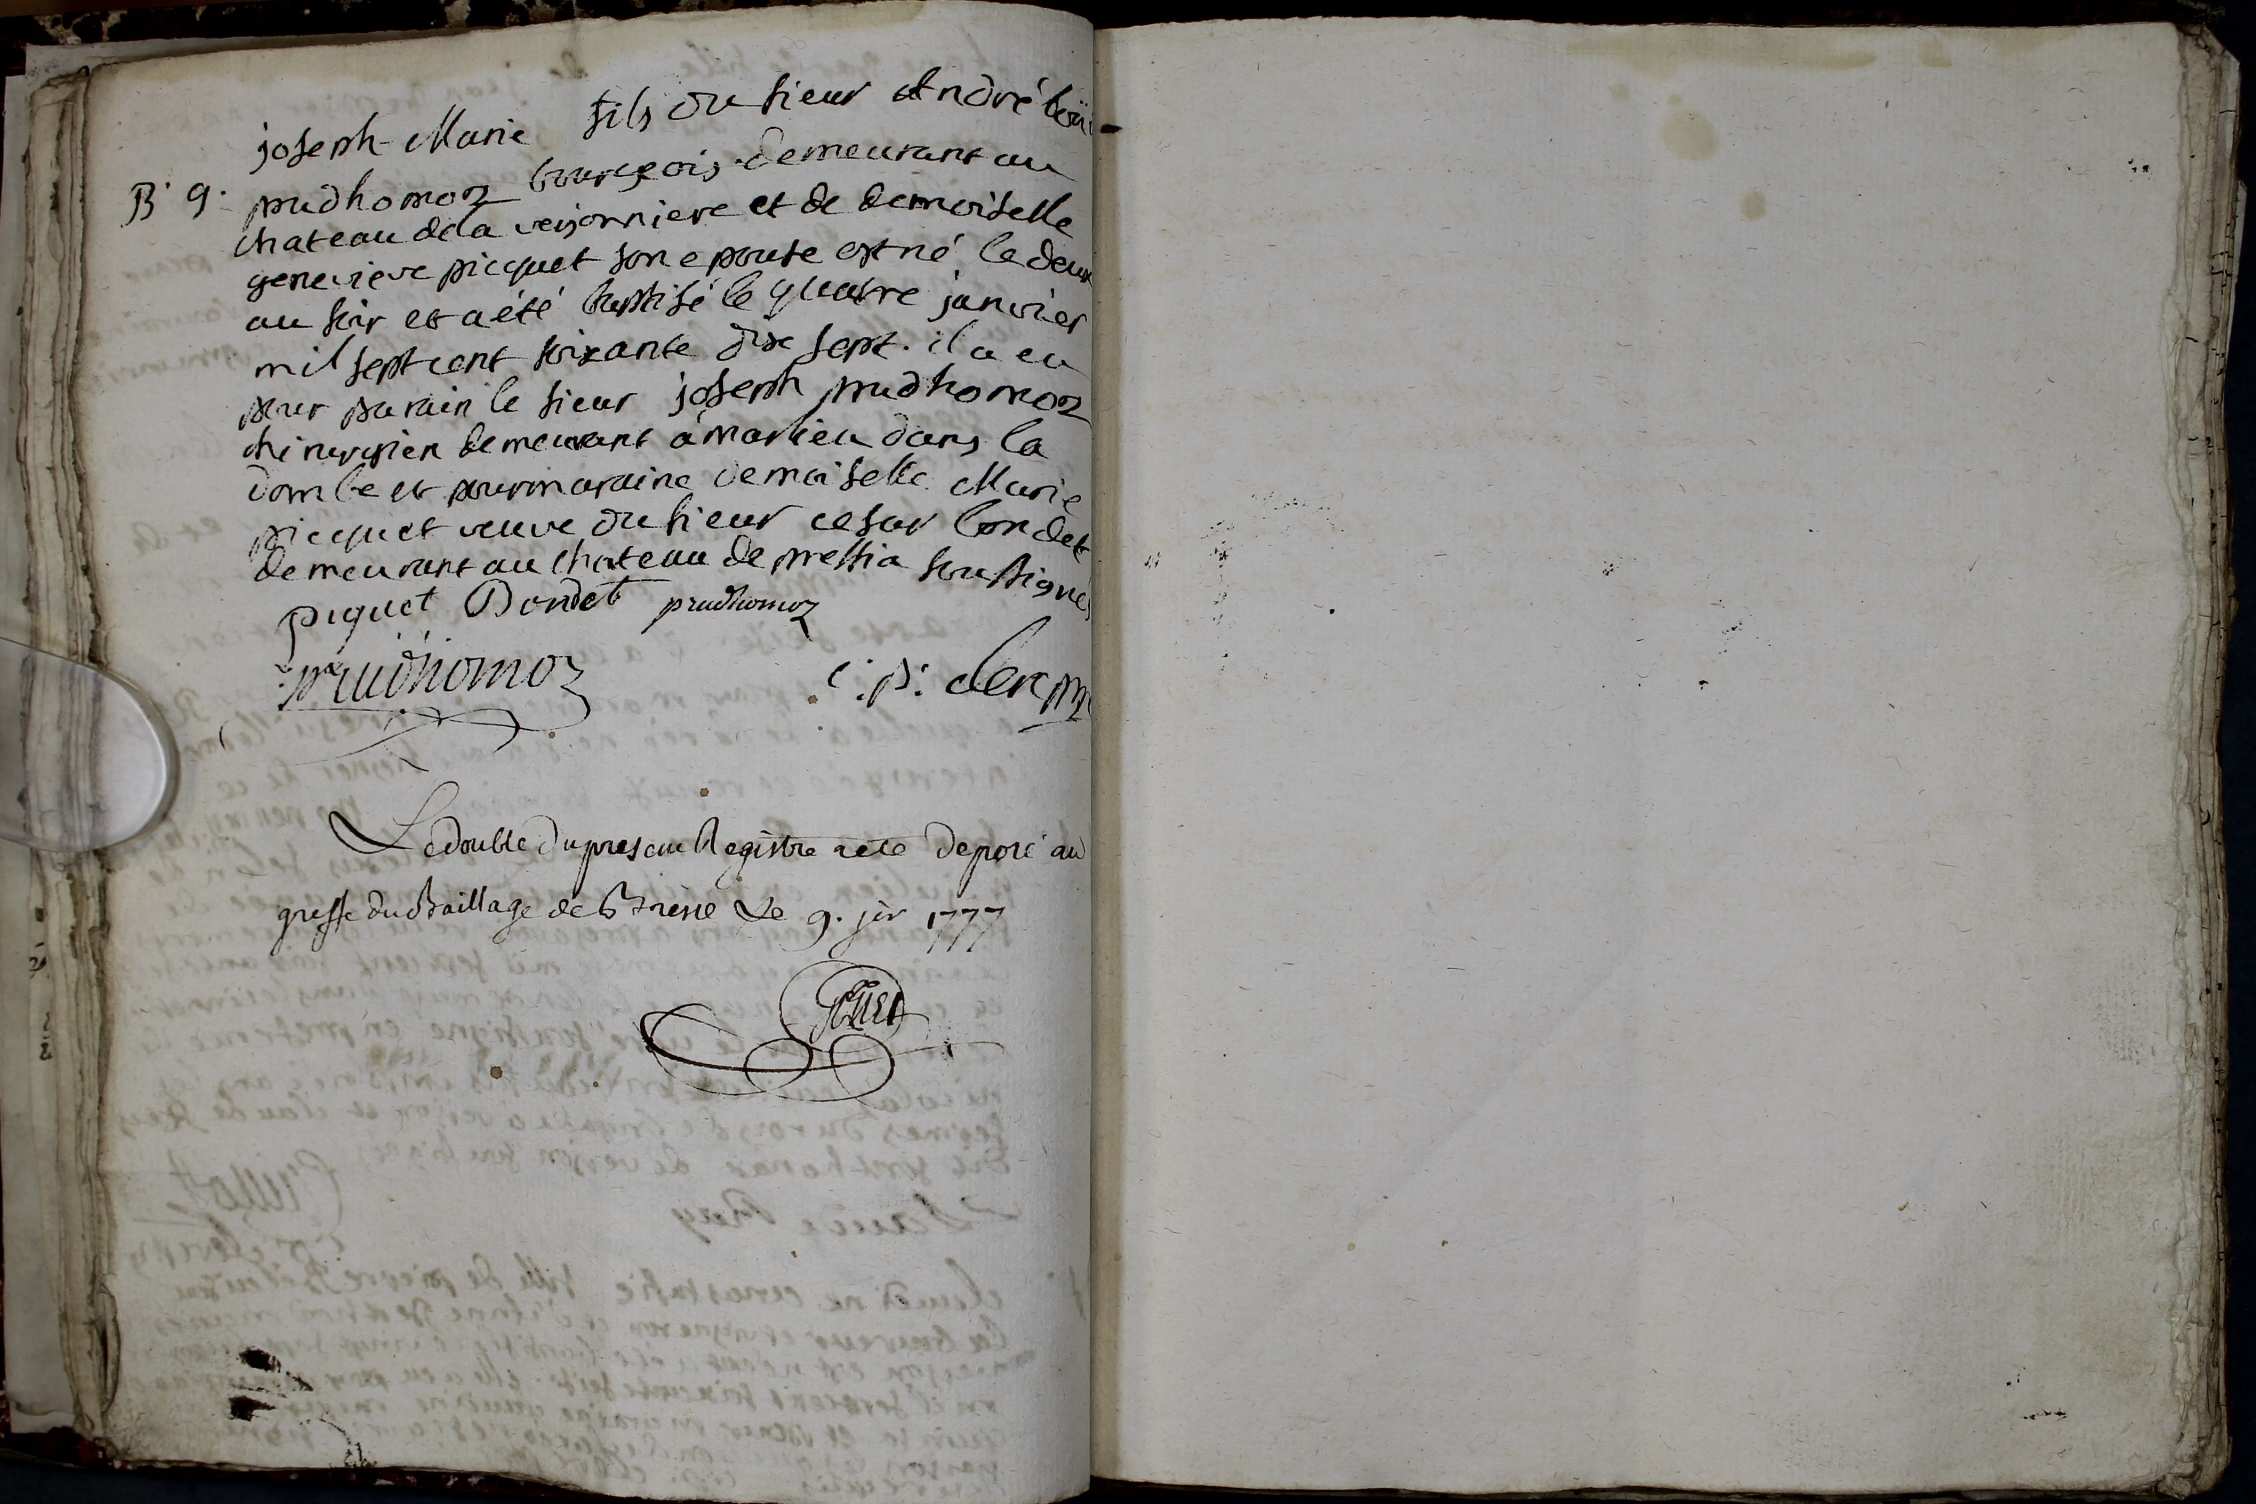 joseph-Marie fils du sieur André
B. 9. prudhomoz bourgeois demeurant au
chateau dela veysonniere et de demoiselle
genevieve picquet son epouse est né le deux
au soir et a été baptisé le quatre janvier
mil sept cent soixante dix sept. il a eu
pour parain le sieur joseph prudhomoz
chirurgien demeurant à marlieu dans la
dombe et pour maraine demoiselle Marie
picquet veuve du sieur cesar bondet
demeurant au chateau de pressia soussignés
piquet Bondet prudhomoz
prudhomoz c. p.
Le double du present Registre a ete deposé au
greffe du Baillage de Bresse Le 9. jer 1777